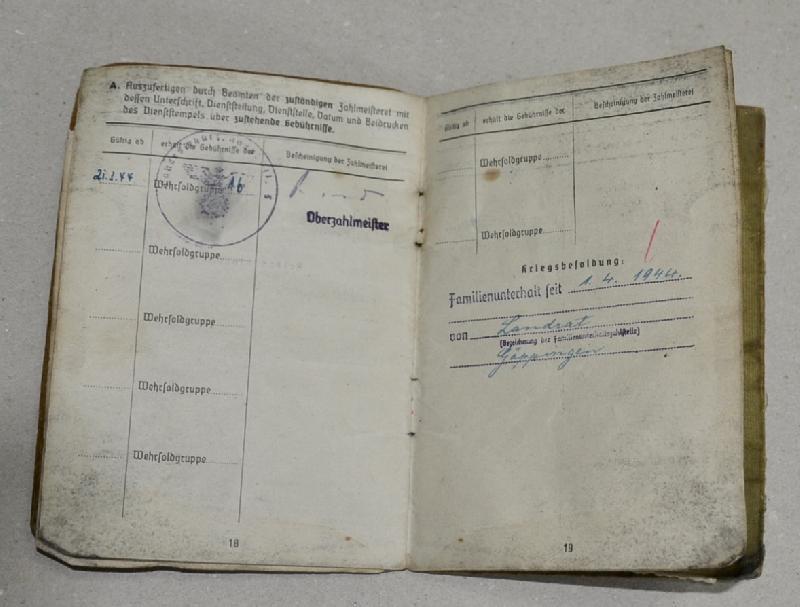 A. Auszufertigen durch Beamten der zuständigen Zahlmeisterei mit
dessen Unterschrift, Dienststellung, Dienststelle, Datum und Beidrucken
des Dienststempels über zustehende Gebührnisse.
Gültig ab
erhält die Gebührnisse der
Bescheinigung der Zahlmeisterei
21.2.44
Wehrsoldgruppe 16
Oberzahlmeister
Wehrsoldgruppe
Wehrsoldgruppe
Wehrsoldgruppe
Wehrsoldgruppe
18
Gültig ab
erhält die Gebührnisse der
Bescheinigung der Zahlmeisterei
Wehrsoldgruppe
Wehrsoldgruppe
Kriegsbesoldung:
Familienunterhalt seit 1. 4. 1944.
von Landrat
(Bezeichnung der Familienunterhaltszahlstelle)
Göppingen
19